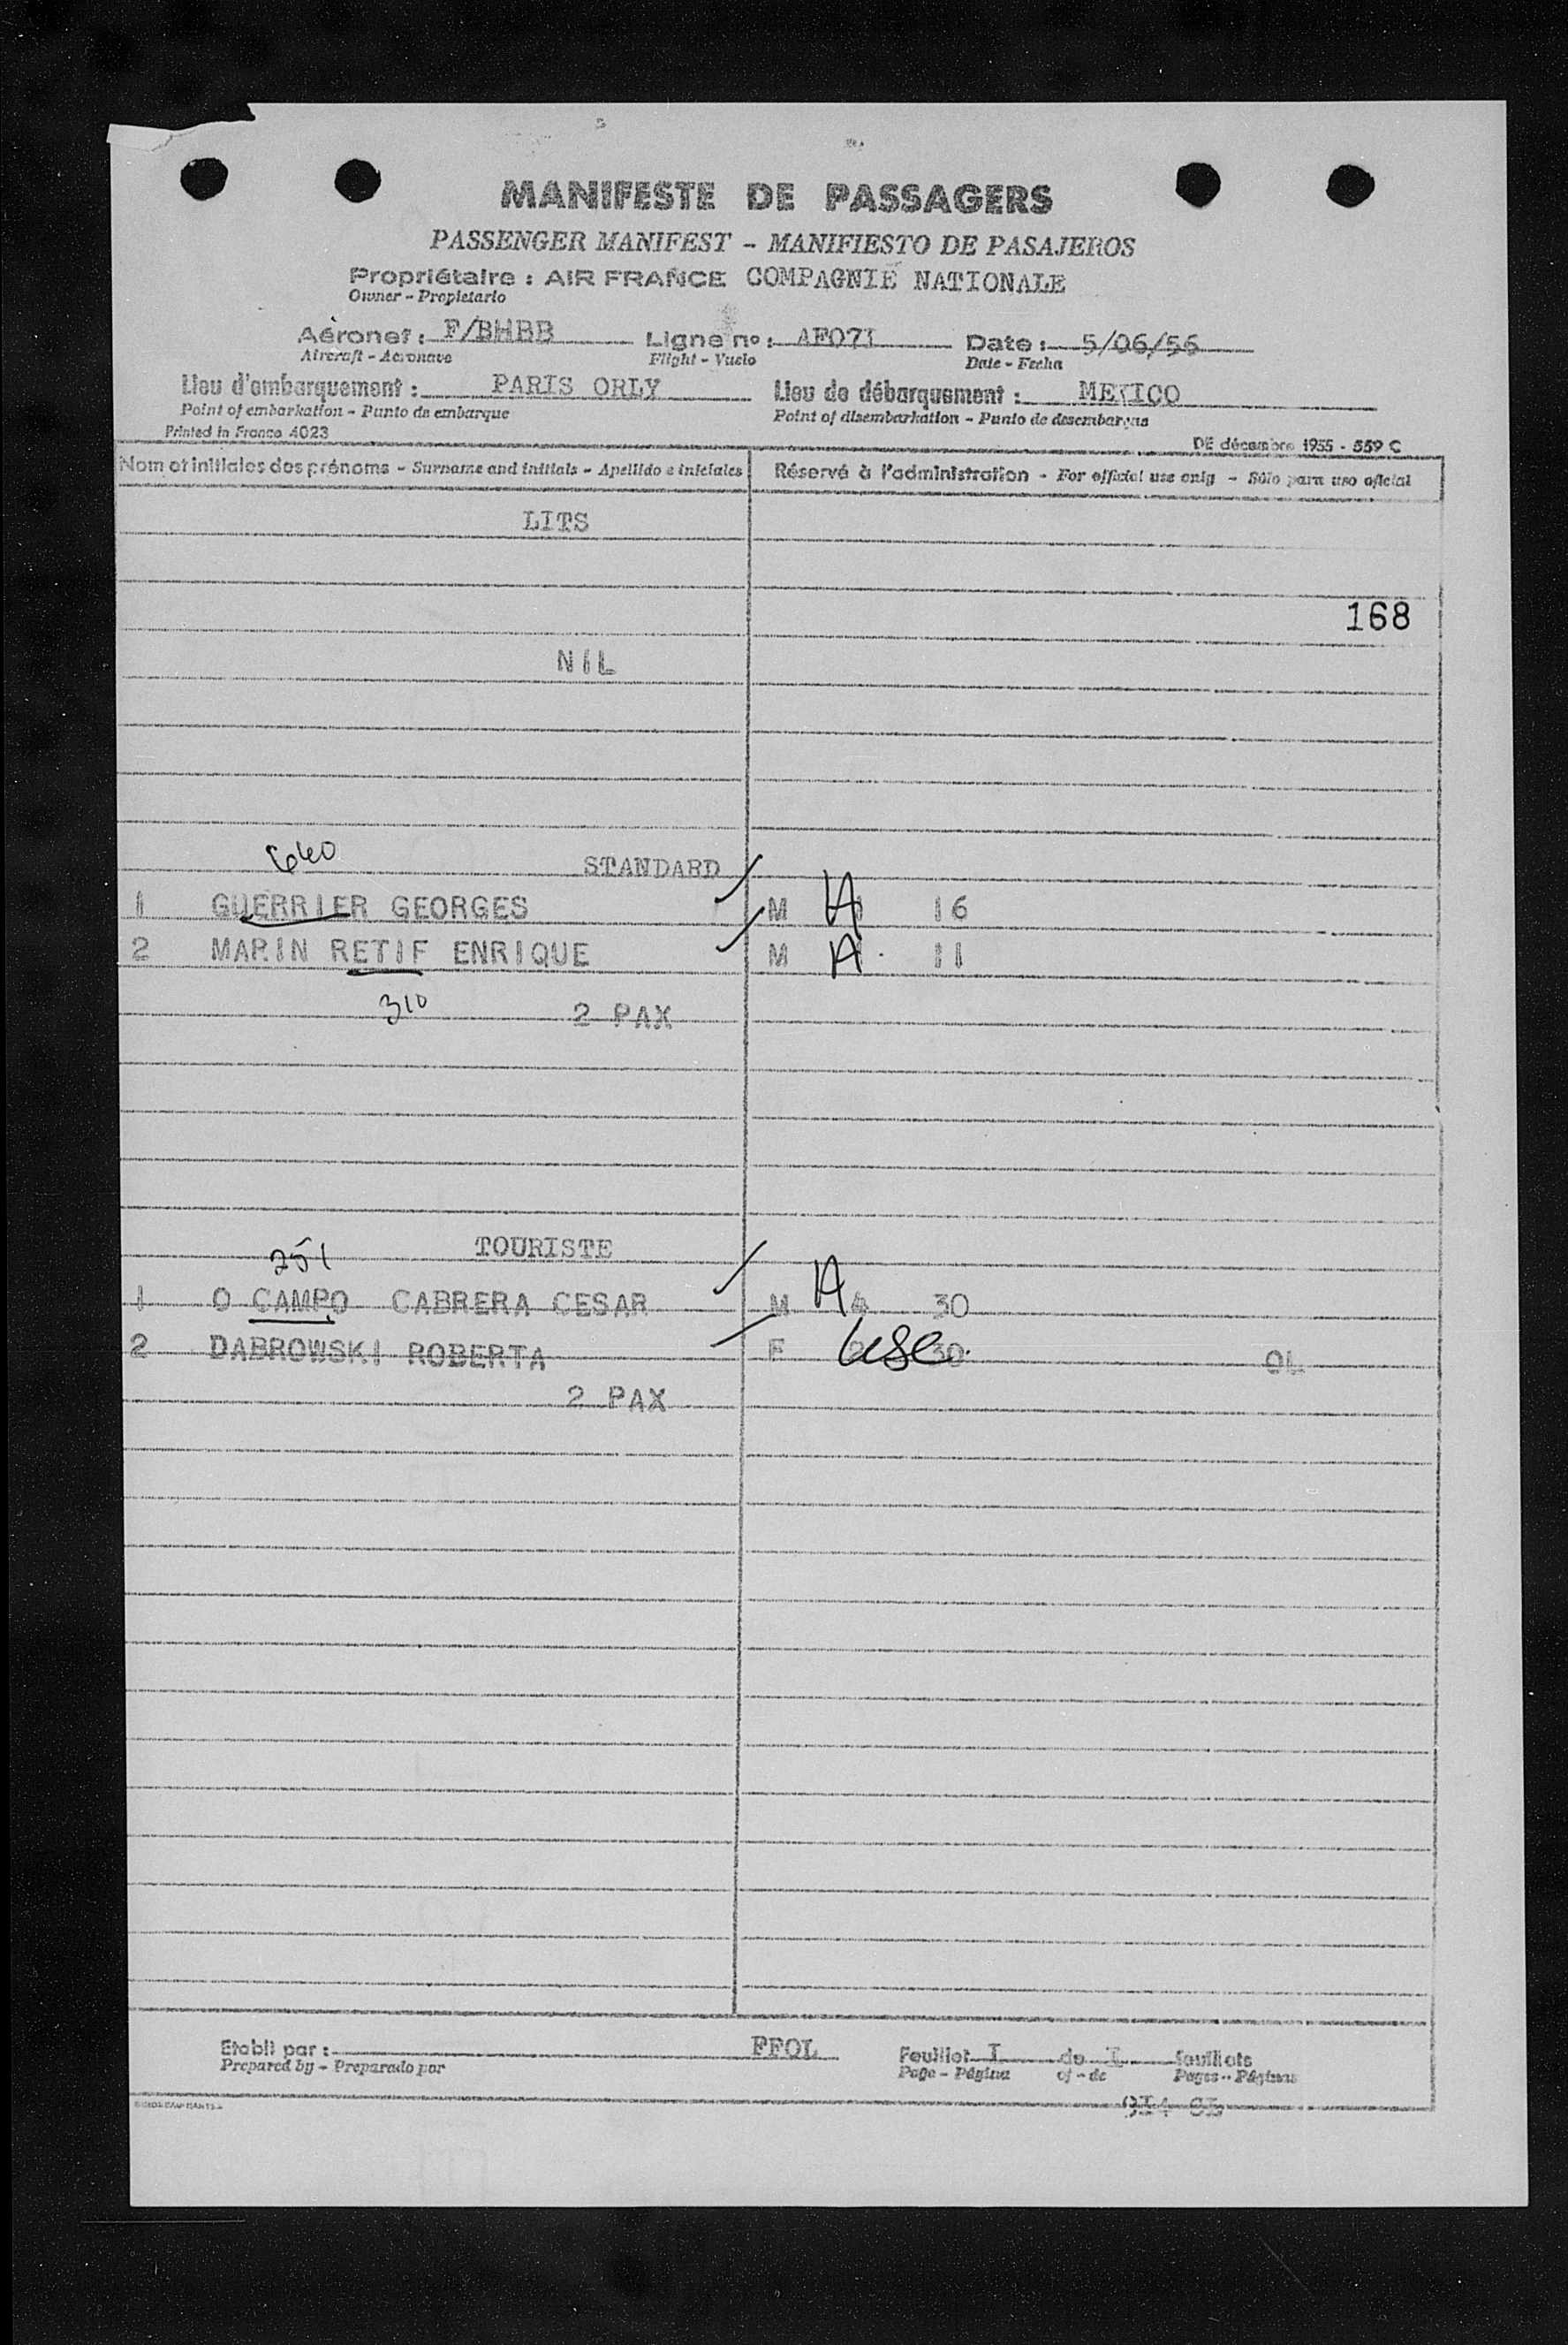 MANIFESTE DE PASSAGERS
PASSENGER MANIFEST - MANIFIESTO DE PASAJEROS
Propriétaire : AIR FRANCE COMPAGNIE NATIONALE
Owner - Propietario
Aéronef : F/BHBB Ligne no : AF071 Date : 5/06/56
Aircraft - Aeronave Flight - Vuelo Date - Fecha
Lieu d'embarquement : PARIS ORLY Lieu de débarquement : MEXICO
Point of embarkation - Punto de embarque Point of disembarkation - Punto de desembarque
Printed in France 4023 DE décembre 1955 - 559 C
Nom et initiales des prénoms - Surname and initials - Apellido e iniciales Réservé à l'administration - For official use only - Sólo para uso oficial
LITS
168
NIL
640
STANDARD
1 GUERRIER GEORGES M A 16
2 MARIN RETIF ENRIQUE M A 11
310
2 PAX
251
TOURISTE
1 O CAMPO CABRERA CESAR M A 30
2 DABROWSKI ROBERTA F usc 30 OL
2 PAX
Etabli par : FFOL Feuillet I de I feuillets
Prepared by - Preparado por Page - Página of - de Pages - Páginas